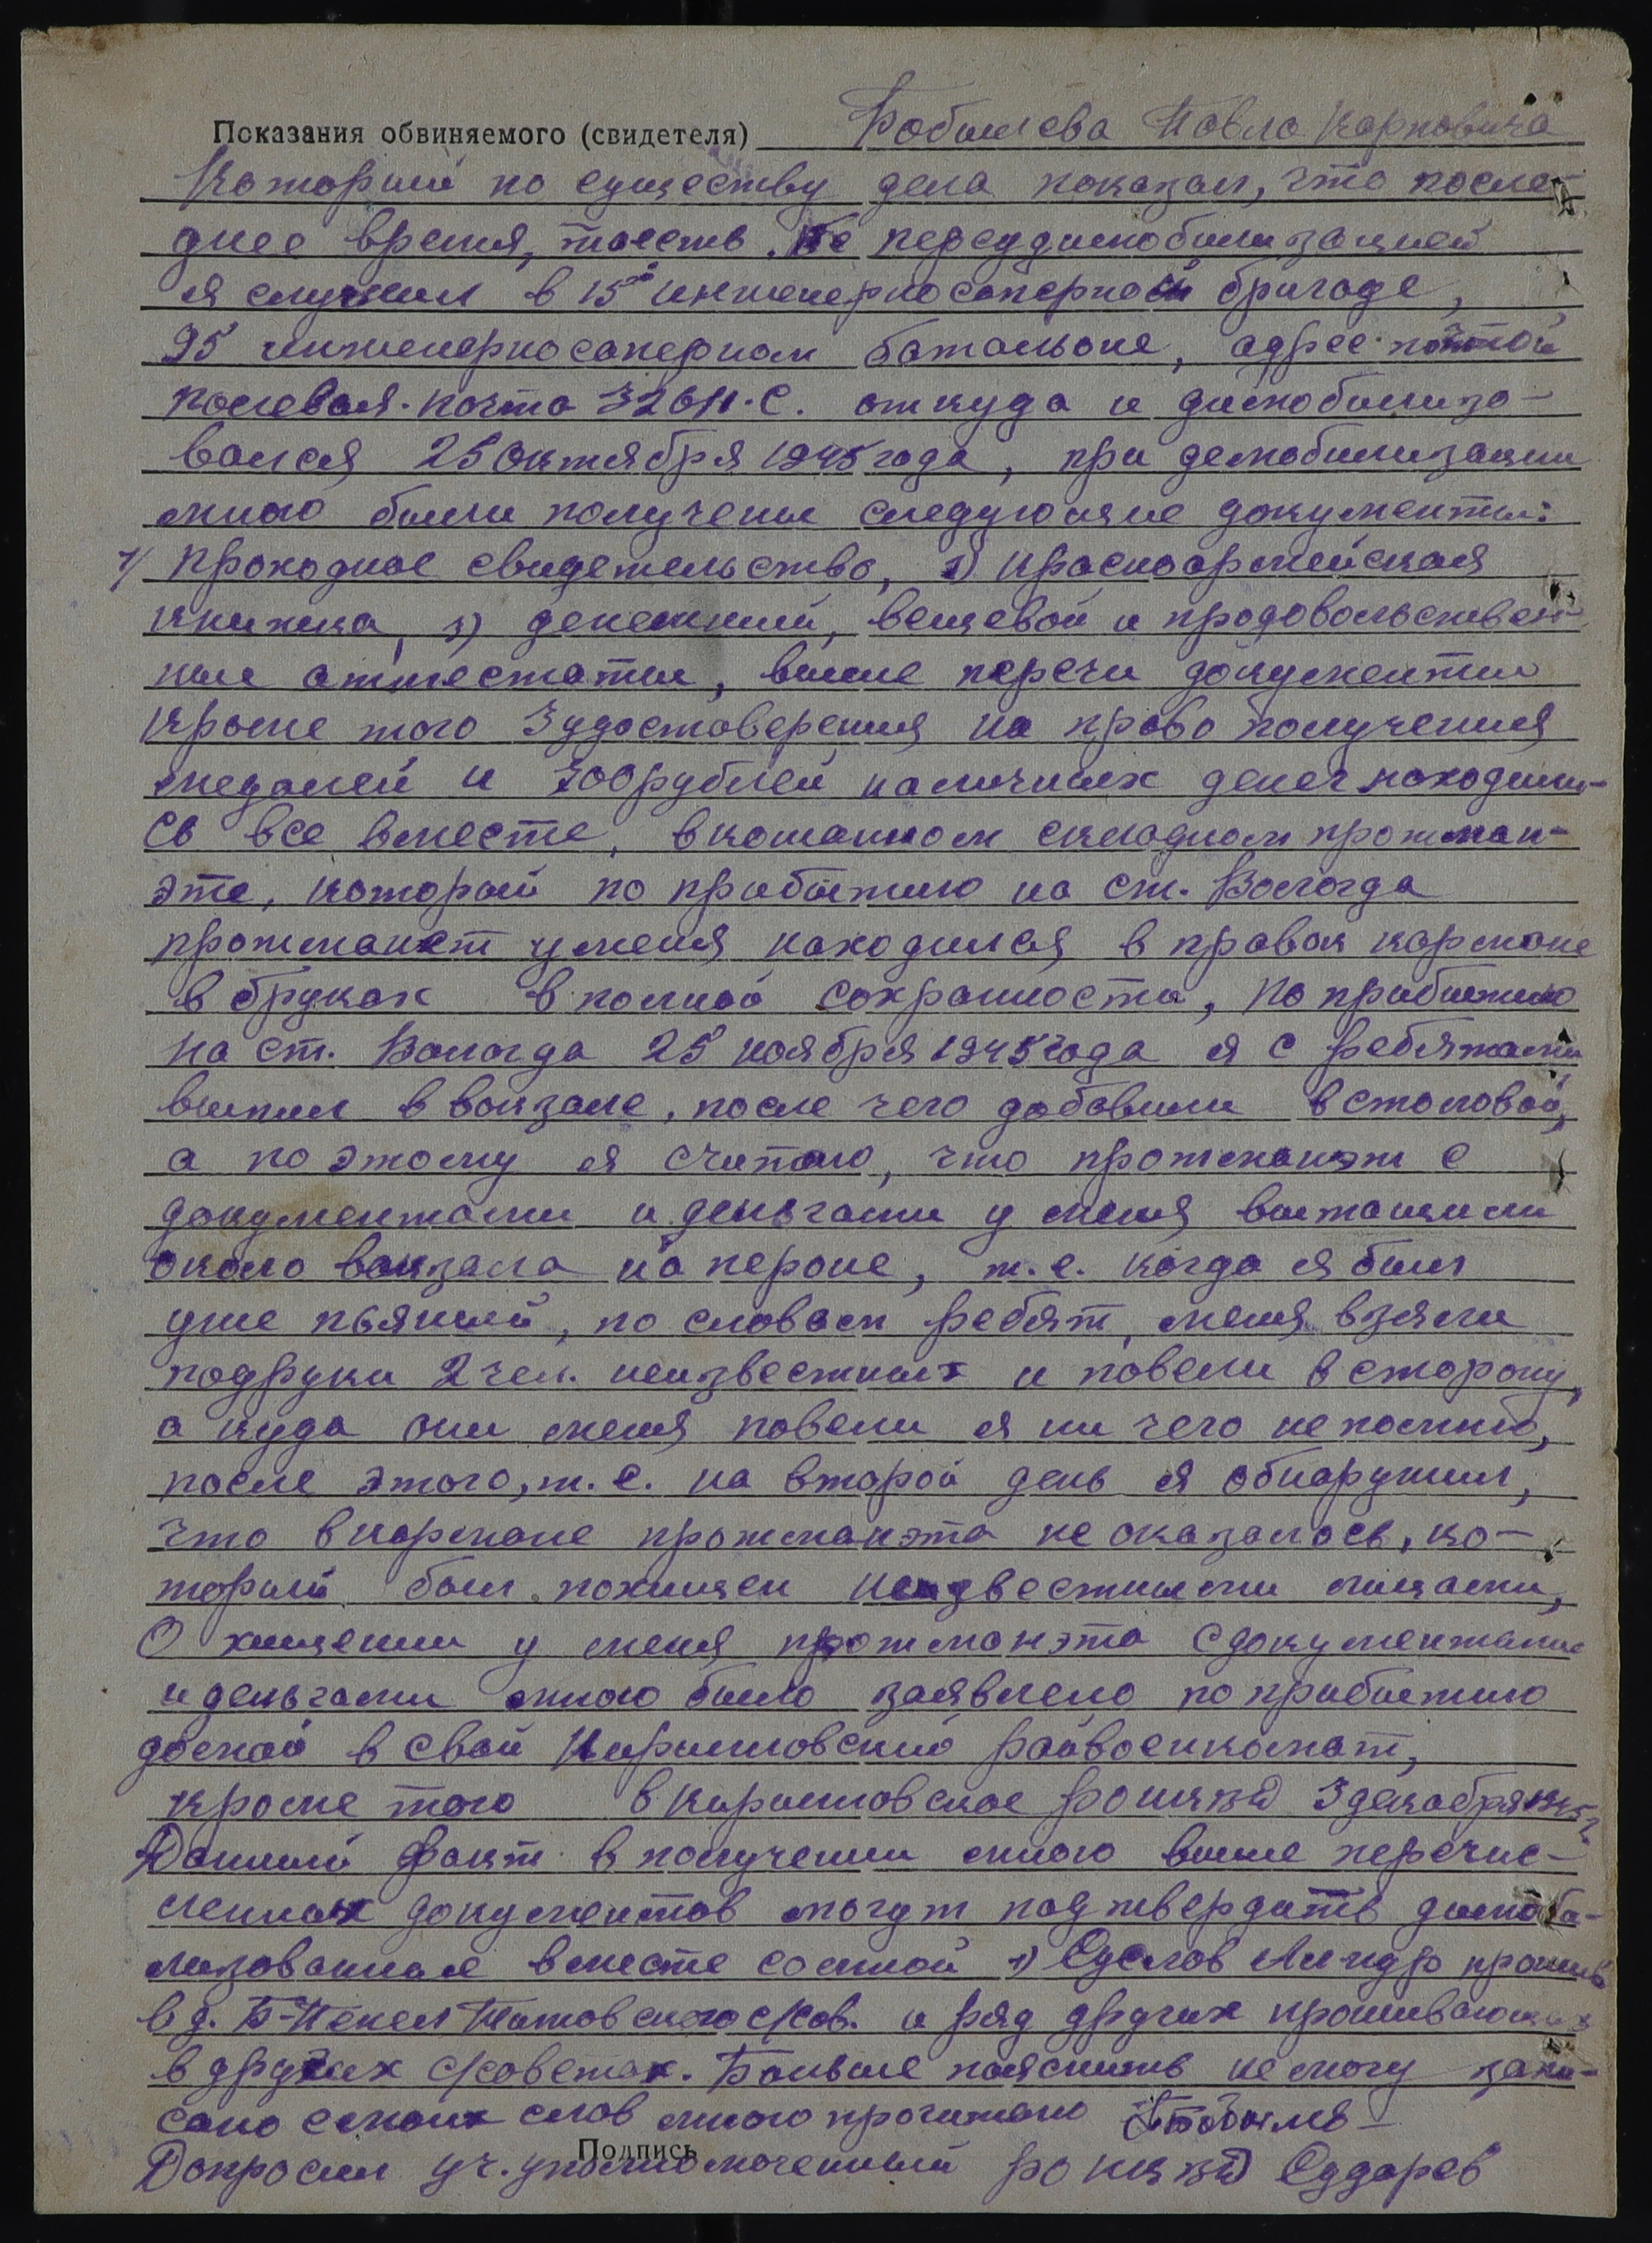 Показания обвиняемого (свидетеля) Бобылева Павла Карповича
Который по существу дела показал, что после-
днее время, тоесть перед димобилизацией
я служил в 15й инженерносаперной бригаде,
95 инженерносаперном батальоне, адрес
полевая почта 32611.С. откуда и димобилизо-
вался 25 октября 1945 года, при демобилизации
мною были получены следующие документы:
1/ проходное свидетельство, 2) красноармейская
книжка, 3) денежный, вещевой и продовольствен-
ные аттестаты, выше перечи документы
кроме того 3 удостоверения на право получения
медалей и 700 рублей наличных денег находили-
сь все вместе, в кожанном складном протман-
эте, который по прибытию на ст. Вологда
протманет уменя находился в правом кармане
в брюках в полной сохранности, По прибытию
на ст. Вологда 25 ноября 1945 года я с ребятами
выпил в вокзале, после чего добавили в столовой,
а по этому я считаю, что протманэт с
документами и деньгами у меня вытащили
около вокзала на пероне, т.е. когда я был
уже пьяный, по словам ребят, меня взяли
подруки 2 чел. неизвестных и повели в сторону,
а куда они меня повели я ни чего не помню,
после этого, т.е. на второй день я обнаружил,
что в кармане протманэта не оказалось, ко-
торый был похищен неизвестными лицами,
О хищении у меня протманэта с документами
и деньгами мною было заявлено по прибытию
домой в свой Кирилловский райвоенкомат,
кроме того в Кирилловское РОНКВД 3 декабря 1945 г.
Данный факт в получении мною выше перечис-
ленных документов могут подтвердить димоби-
лизованные вместе сомной 1) Суслов прожив
в д. сов. и ряд других проживающих
в других с/советах. Больше пояснить не могу запи-
сано смоих слов мною прочитано
Подпись
Допросил уч. уполномоченный РОНКВД Сударев